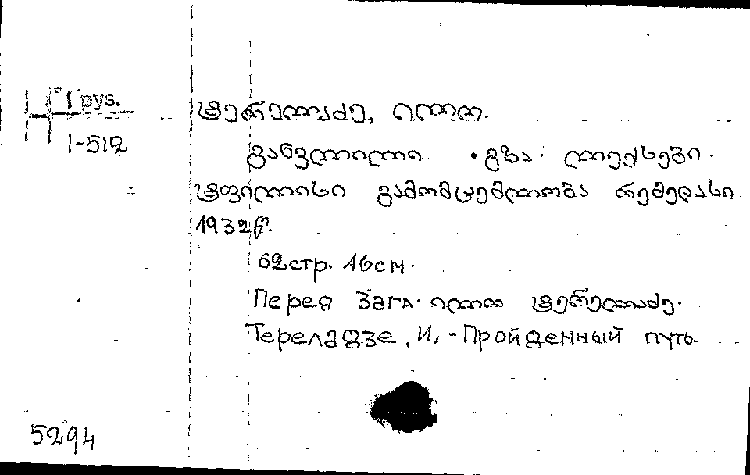 Груз.
1-512
ტერელაძე, ილო.
განვლილი გზა. ლექსები.
ტფილისი გამომცემლობა
1932წ.
62стр. 16см.
Перед Загл. ილო ტერელაძე.
Тереладзе, И. - Пройденный путь.
5294